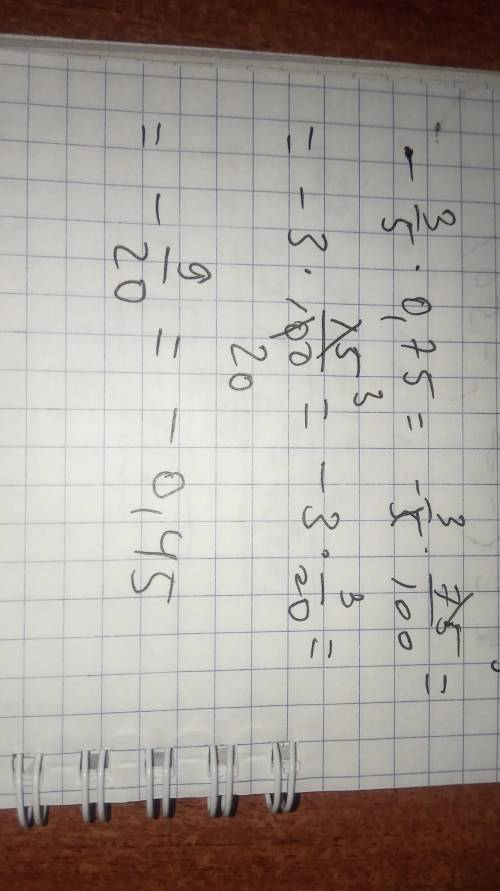 - 3/5 · 0,75 = - 3/5 · 75/100 =
= - 3 · 15/100 3 20 = - 3 · 3/20 =
= - 9/20 = - 0,45